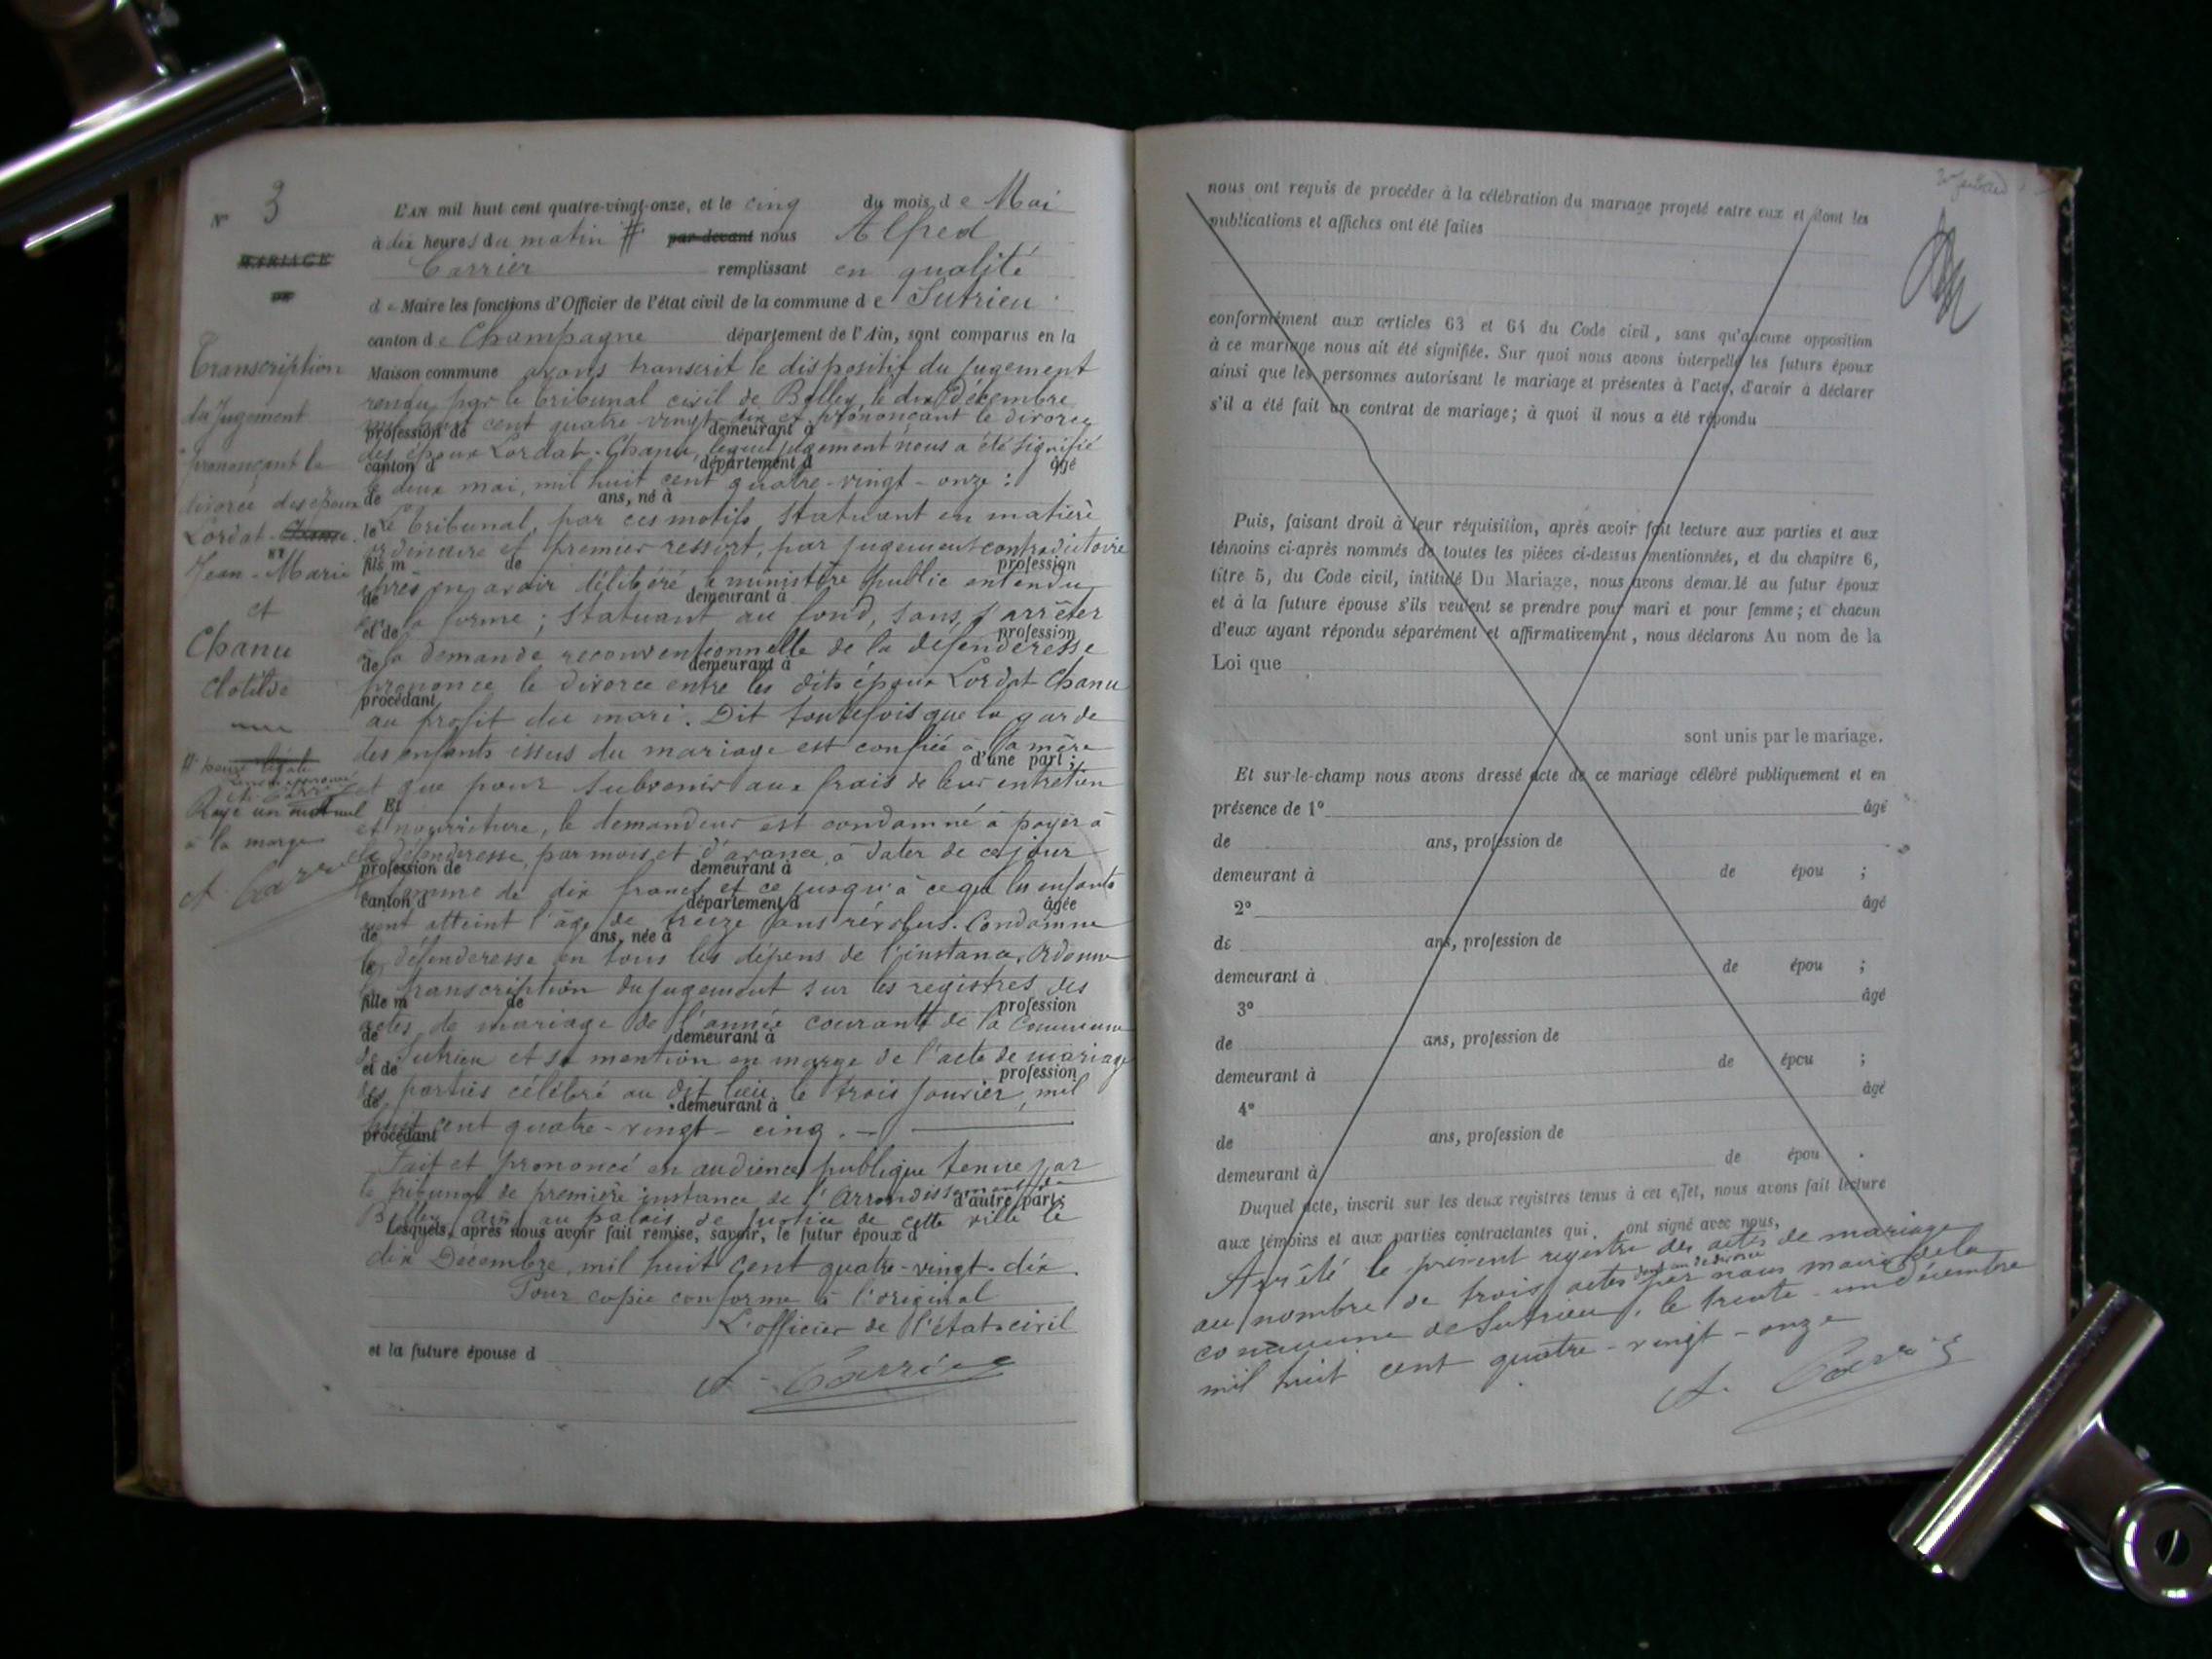 N° 3
MARIAGE
DE
Transcription
du Jugement
prononçant le
divorce des époux
Lordat - Chanu.
Jean-Marie
et
Chanu
Clotilde
Rayé un mot nul
à la marge
A. Carrier
L'AN mil huit cent quatre-vingt-onze, et le cinq du mois de Mai
à dix heures du matin # par-devant nous Alfred
Carrier remplissant en qualité
de Maire les fonctions d'Officier de l'état civil de la commune de Sutrieu
canton de Champagne département de l'Ain, sont comparus en la
Maison commune avons transcrit le dispositif du jugement
rendu par le tribunal civil de Belley le dix Décembre
mil huit cent quatre-vingt-dix et prononçant le divorce
profession de demeurant à
des époux Lordat-Chanu, lequel jugement nous a été signifié
canton d département d âgé
le deux mai, mil huit cent quatre-vingt-onze :
de ans, né à
Le tribunal, par ces motifs, statuant en matière
le
ordinaire et premier ressort, par jugement contradictoire
fils m de profession
après en avoir délibéré, le ministère public entendu
de demeurant à
en la forme ; statuant au fond, sans s'arrêter
et de profession
à la demande reconventionnelle de la défenderesse
de demeurant à
prononce le divorce entre les dits époux Lordat Chanu
procédant
au profit du mari. Dit toutefois que la garde
des enfants issus du mariage est confiée à la mère
d'une part ;
et que pour subvenir aux frais de leur entretien
Et
et nourriture, le demandeur est condamné à payer à
la défenderesse, par mois et d'avance, à dater de ce jour
profession de demeurant à
la somme de dix francs et ce jusqu'à ce que les enfants
canton d département d âgée
aient atteint l'âge de treize ans révolus. Condamne
de ans, née à
la défenderesse en tous les dépens de l'instance, Ordonne
le
la transcription du jugement sur les registres des
fille m de profession
actes de mariage de l'année courante de la Commune
de demeurant à
de Sutrieu et sa mention en marge de l'acte de mariage
et de profession
des parties célébré au dit lieu le trois janvier, mil
de demeurant à
huit cent quatre-vingt-cinq.
procédant
Fait et prononcé en audience publique tenue par
le tribunal de première instance de l'Arrondissement de
d'autre part ;
Belley (Ain) au palais de justice de cette ville le
Lesquels, après nous avoir fait remise, savoir, le futur époux d
dix Décembre mil huit cent quatre-vingt-dix.
Pour copie conforme à l'original
L'officier de l'état-civil
et la future épouse d
A. Carrier
nous ont requis de procéder à la célébration du mariage projeté entre eux et dont les
publications et affiches ont été faites
conformément aux articles 63 et 64 du Code civil, sans qu'aucune opposition
à ce mariage nous ait été signifiée. Sur quoi nous avons interpellé les futurs époux
ainsi que les personnes autorisant le mariage et présentes à l'acte, d'avoir à déclarer
s'il a été fait un contrat de mariage ; à quoi il nous a été répondu
Puis, faisant droit à leur réquisition, après avoir fait lecture aux parties et aux
témoins ci-après nommés de toutes les pièces ci-dessus mentionnées, et du chapitre 6,
titre 5, du Code civil, intitulé Du Mariage, nous avons demandé au futur époux
et à la future épouse s'ils veulent se prendre pour mari et pour femme ; et chacun
d'eux ayant répondu séparément et affirmativement, nous déclarons Au nom de la
Loi que
sont unis par le mariage.
Et sur-le-champ nous avons dressé acte de ce mariage célébré publiquement et en
présence de 1° âgé
de ans, profession de
demeurant à de épou ;
2° âgé
de ans, profession de
demeurant à de épou ;
3° âgé
de ans, profession de
demeurant à de épou ;
4° âgé
de ans, profession de
demeurant à de épou .
Duquel acte, inscrit sur les deux registres tenus à cet effet, nous avons fait lecture
aux témoins et aux parties contractantes qui ont signé avec nous,
Arrêté le présent registre des actes de mariage
au nombre de trois actes dont un de divorce par nous maire de la
commune de Sutrieu, le trente-un décembre
mil huit cent quatre-vingt-onze
A. Carrier